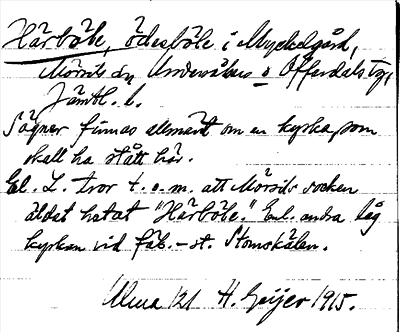 Härböle, ödesböle i Myckelgård,
Mörsils sn, Undersåkers o Offerdals tg,
Jämtl. l.
Sägner finnas allmänt om en kyrka, som
skall ha stått här.
El. L. tror t.o.m. att Mörsils socken
äldst hetat "Härböle." Enl. andra låg
kyrkan vid fäb.-st. Stomskälen.
Ulma 121 H. Geijer 1915.